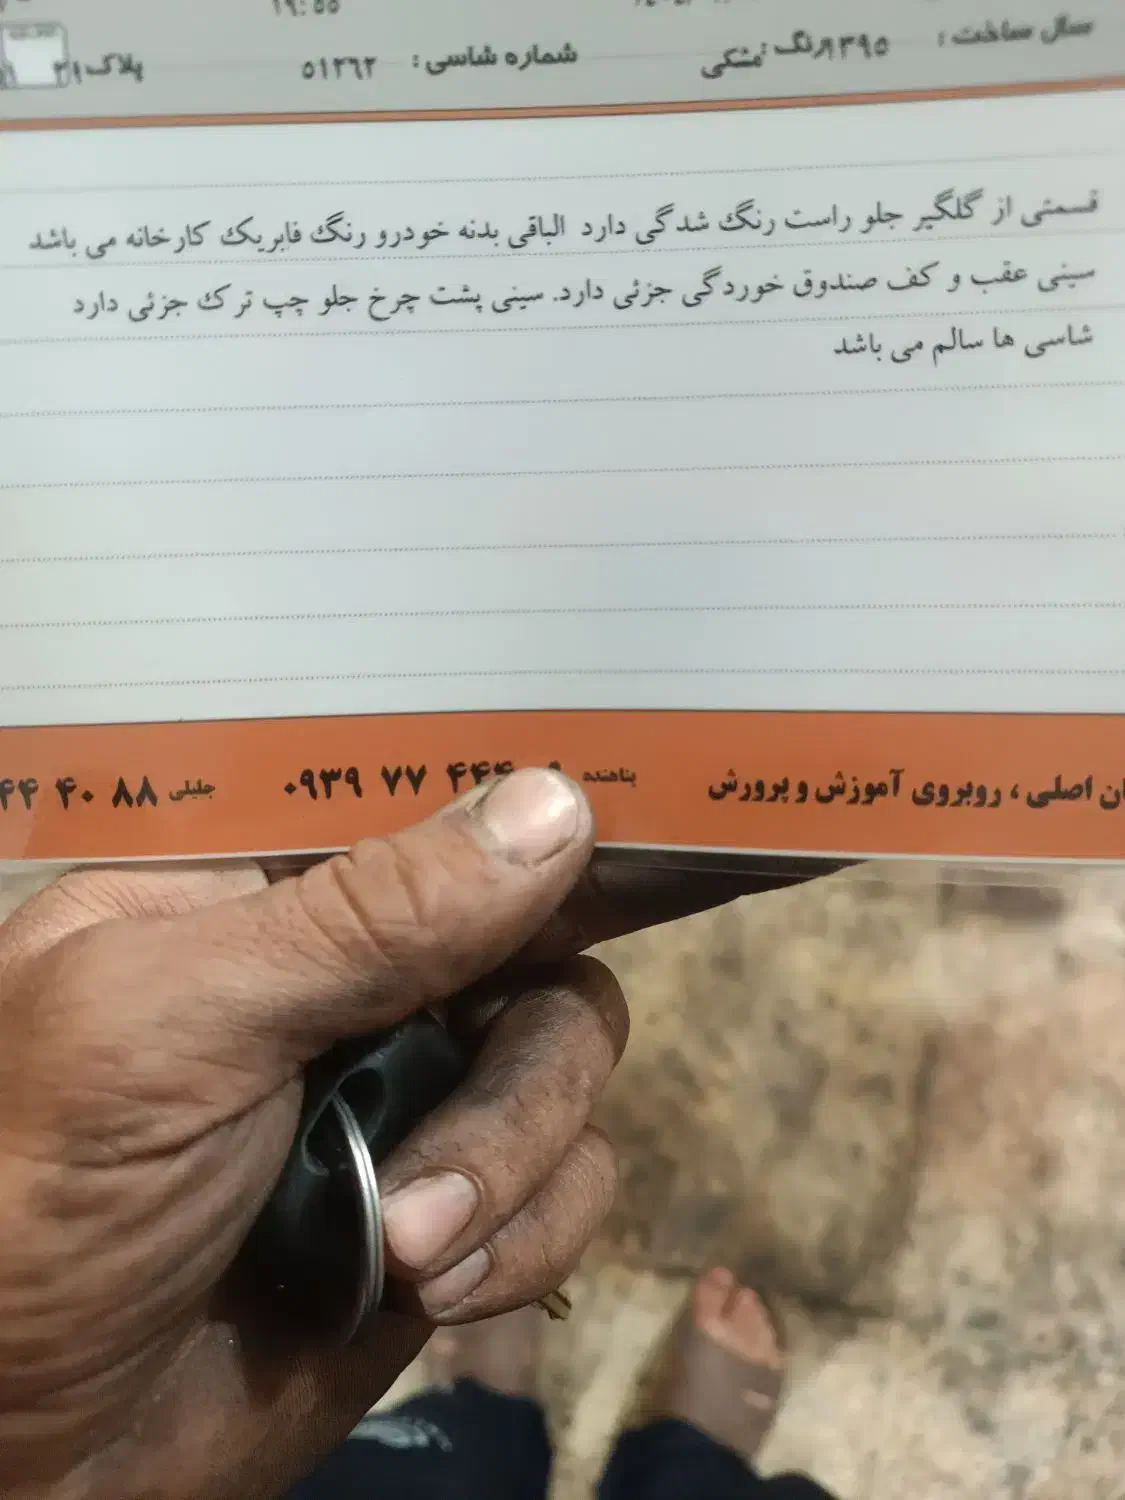 ۱۹:۵۵
سال ساخت : ۱۳۹۵ رنگ : مشکی شماره شاسی : ۵۱۲۶۲ پلاک
قسمتی از گلگیر جلو راست رنگ شدگی دارد الباقی بدنه خودرو رنگ فابریک کارخانه می باشد
سینی عقب و کف صندوق خوردگی جزئی دارد. سینی پشت چرخ جلو چپ ترک جزئی دارد
شاسی ها سالم می باشد
ان اصلی ، روبروی آموزش و پرورش پناهنده ۰۹۳۹ ۷۷ ۴۴۴ جلیلی ۸۸ ۴۰ ۴۴